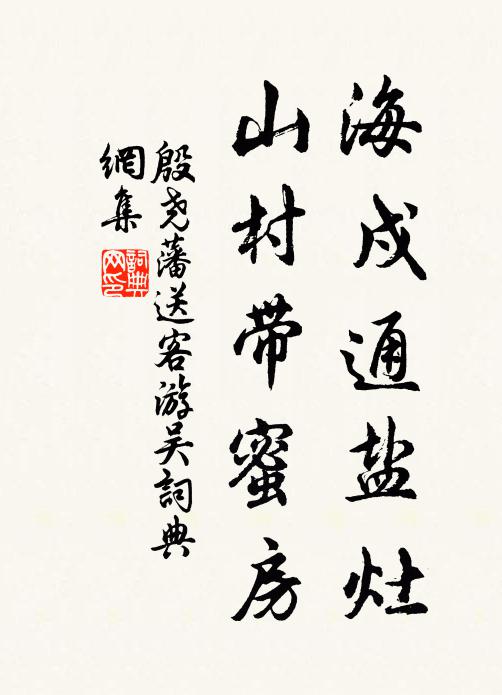 海戍通盐灶
山村带蜜房
殷尧藩送客游吴詞典
網集
詞典
网印